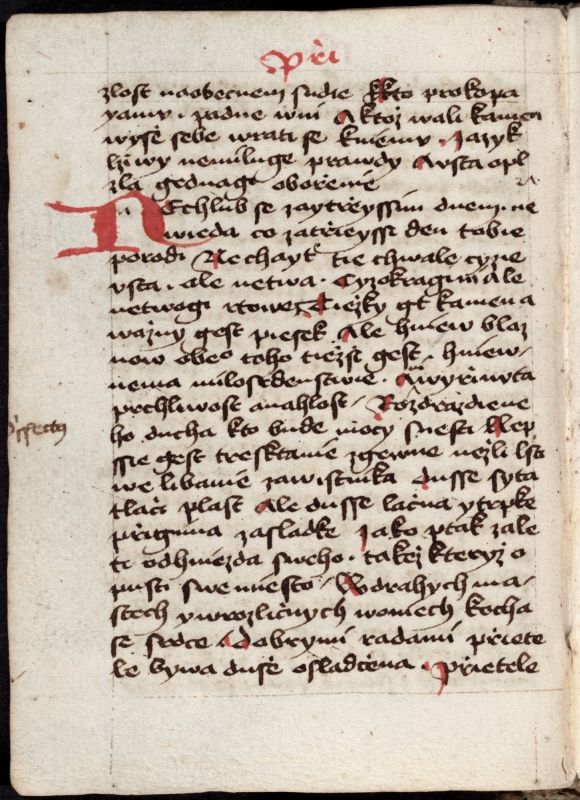 Při
zlost naobecnem sudie Kto prokopa
yamu · padne wni A ktoz wali kamen
wyše sebe wrati se kniemu · Jazyk
lziwy nemiluge prawdy A vsta opl
zla gednagi obořenie
NEchlub se zaytřeyssim dnem · ne
wieda co zatřieyssi den tobie
porodi Nechayt tie chwale cyzie
vsta · ale netwa · Cyzokraginni Ale
netwogi rtowe Ciezky gt kamen a
wazny gest piesek Ale hniew blaz
now obeo toho tiezši gest · hniew-
nema milosrdenstwie · A wyřinuta
prchliwost a nahlost · Rozdrazdiene
ho ducha kto bude mocy snesti Lep
ssie gest tresktanie zgewne nezli lsti
we libanie zawistnika Dusse syta
tlači plast Ale dusse lačna y trpke
přigima zasladke Jako ptak zale
ti odhniezda sweho · takez kteryz o
pusti swe miesto · W drahych ma-
stech y wrozličnych woniech kocha
se srdce A dobrymi radami přiete
le bywa duše osladčena · Přietele